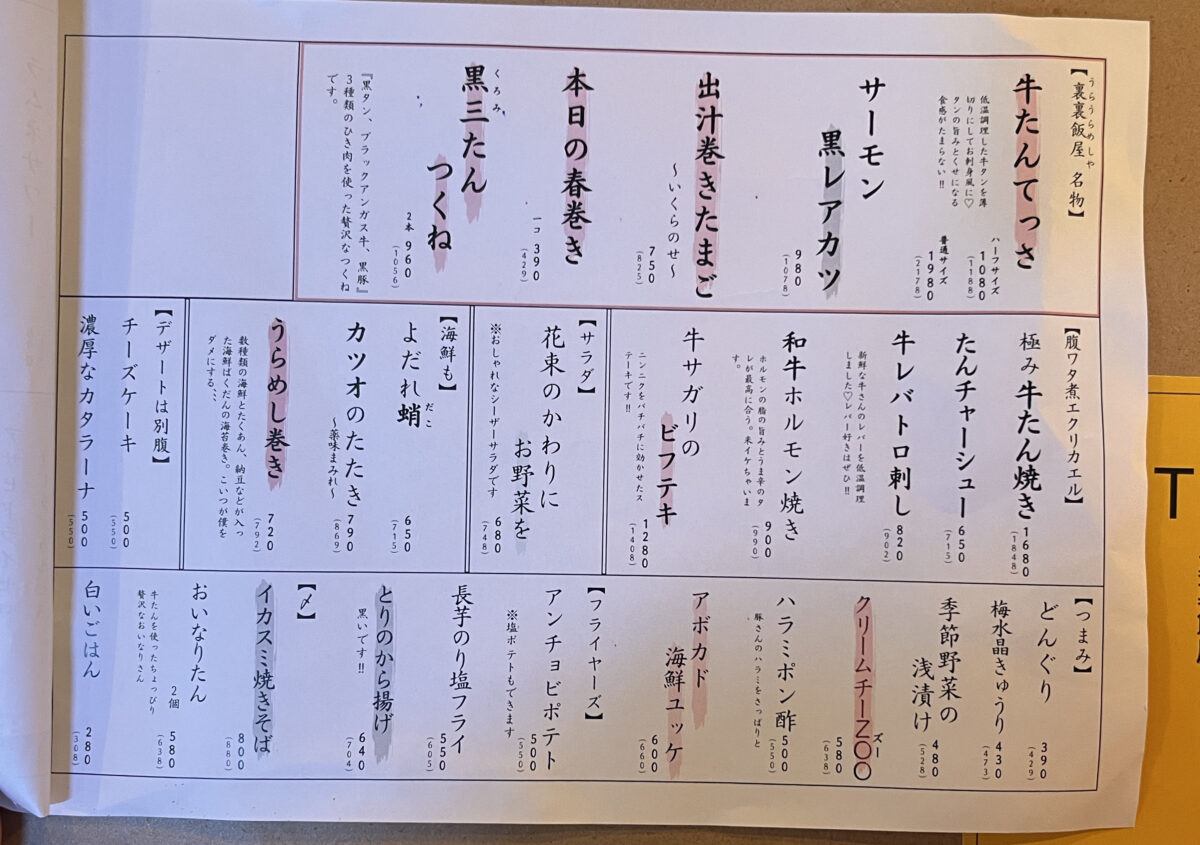 【裏裏飯屋 名物】
うらうらめしや
牛たんてっさ
低温調理した牛タンを薄
切りにしてお刺身風に♡
タンの旨みとくせになる
食感がたまらない!!
ハーフサイズ
1080
(1188)
普通サイズ
1980
(2178)
サーモン
黒レアカツ
980
(1078)
出汁巻きたまご
〜いくらのせ〜
750
(825)
本日の春巻き
一コ 390
(429)
黒三たん
くろみ
つくね
2本 960
(1056)
『黒タン、ブラックアンガス牛、黒豚』
3種類のひき肉を使った贅沢なつくね
です。
【腹ワタ煮エクリカエル】
極み牛たん焼き
1680
(1848)
たんチャーシュー
650
(715)
牛レバトロ刺し
820
(902)
新鮮な牛さんのレバーを低温調理
しました♡レバー好きはぜひ!!
和牛ホルモン焼き
900
(990)
ホルモンの脂の旨みとうま辛のタ
レが最高に合う。米イケちゃいま
す。
牛サガリの
ビフテキ
1280
(1408)
ニンニクをバチバチに効かせたス
テーキです!!
【サラダ】
花束のかわりに
お野菜を
680
(748)
※おしゃれなシーザーサラダです
【海鮮も】
よだれ蛸
だこ
650
(715)
カツオのたたき
〜薬味まみれ〜
790
(869)
うらめし巻き
720
(792)
数種類の海鮮とたくあん、納豆などが入っ
た海鮮ばくだんの海苔巻き。こいつが僕を
ダメにする、、、
【デザートは別腹】
チーズケーキ
500
(550)
濃厚なカタラーナ
500
(550)
【つまみ】
どんぐり
390
(429)
梅水晶きゅうり
430
(473)
季節野菜の
浅漬け
480
(528)
クリームチーZ〇〇
ズー
580
(638)
ハラミポン酢
500
(550)
豚さんのハラミをさっぱりと
アボカド
海鮮ユッケ
600
(660)
【フライヤーズ】
アンチョビポテト
500
(550)
※塩ポテトもできます
長芋のり塩フライ
550
(605)
とりのから揚げ
640
(704)
黒いです!!
【〆】
イカスミ焼きそば
800
(880)
おいなりたん
2個 580
(638)
牛たんを使ったちょっぴり
贅沢なおいなりさん
白いごはん
280
(308)
T